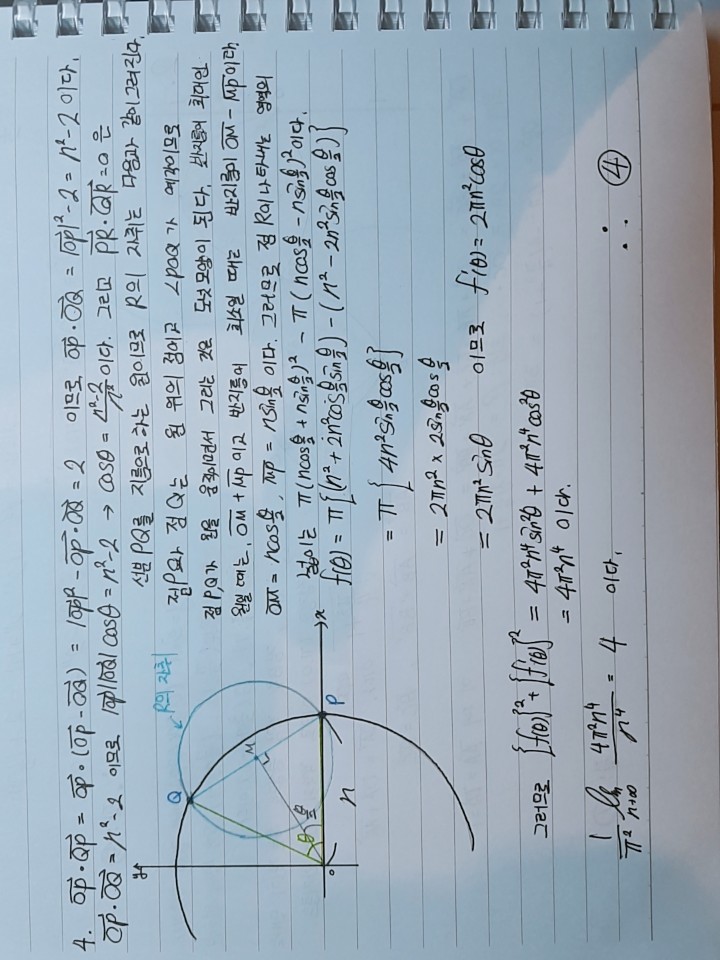 4. $\overrightarrow{OP}\cdot\overrightarrow{QP} = \overrightarrow{OP}\cdot(\overrightarrow{OP}-\overrightarrow{OQ}) = |\overrightarrow{OP}|^2 - \overrightarrow{OP}\cdot\overrightarrow{OQ} = 2$ 이므로 $\overrightarrow{OP}\cdot\overrightarrow{OQ} = |\overrightarrow{OP}|^2 - 2 = n^2-2$ 이다.
$\overrightarrow{OP}\cdot\overrightarrow{OQ} = n^2-2$ 이므로 $|\overrightarrow{OP}||\overrightarrow{OQ}|\cos\theta = n^2-2 \to \cos\theta = \frac{n^2-2}{n^2}$이다. 그리고 $\overrightarrow{PR}\cdot\overrightarrow{QR}=0$ 은
선분 PQ를 지름으로 하는 원이므로 R의 자취는 다음과 같이 그려진다.
점P와 점Q는 원 위의 점이고 ∠POQ가 예각이므로
점P,Q가 원을 움직이면서 그리는 것은 도넛모양이 된다. 반지름이 최대인
원일 때는, $\overline{OM}+\overline{MP}$이고 반지름이 최소일 때는 반지름이 $\overline{OM}-\overline{MP}$이다.
$\overline{OM} = n\cos\frac{\theta}{2}$, $\overline{MP} = n\sin\frac{\theta}{2}$ 이다. 그러므로 점 R이 나타내는 영역의
넓이는 $\pi(n\cos\frac{\theta}{2}+n\sin\frac{\theta}{2})^2 - \pi(n\cos\frac{\theta}{2}-n\sin\frac{\theta}{2})^2$이다.
$f(\theta) = \pi\{(n^2+2n^2\cos\frac{\theta}{2}\sin\frac{\theta}{2})-(n^2-2n^2\sin\frac{\theta}{2}\cos\frac{\theta}{2})\}$
$= \pi\{4n^2\sin\frac{\theta}{2}\cos\frac{\theta}{2}\}$
$= 2\pi n^2 \times 2\sin\frac{\theta}{2}\cos\frac{\theta}{2}$
$= 2\pi n^2\sin\theta$ 이므로 $f'(\theta) = 2\pi n^2\cos\theta$
y
Q
R의 자취
M
θ
$\frac{\theta}{2}$
O
n
P
x
그러므로 $\{f(\theta)\}^2+\{f'(\theta)\}^2 = 4\pi^2n^4\sin^2\theta + 4\pi^2n^4\cos^2\theta$
$= 4\pi^2n^4$ 이다.
$\frac{1}{\pi^2}\lim_{n\to\infty}\frac{4\pi^2n^4}{n^4} = 4$ 이다. ∴ ④